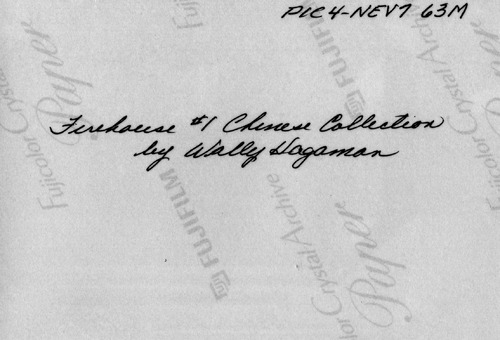 PIC4-NEV7 63M
Firehouse #1 Chinese Collection
by Wally Hagaman
Fujicolor Crystal Archive
Paper
FUJIFILM
Crystal Archive
Paper
FUJIFILM
Fujicolor Crystal Archive
Paper